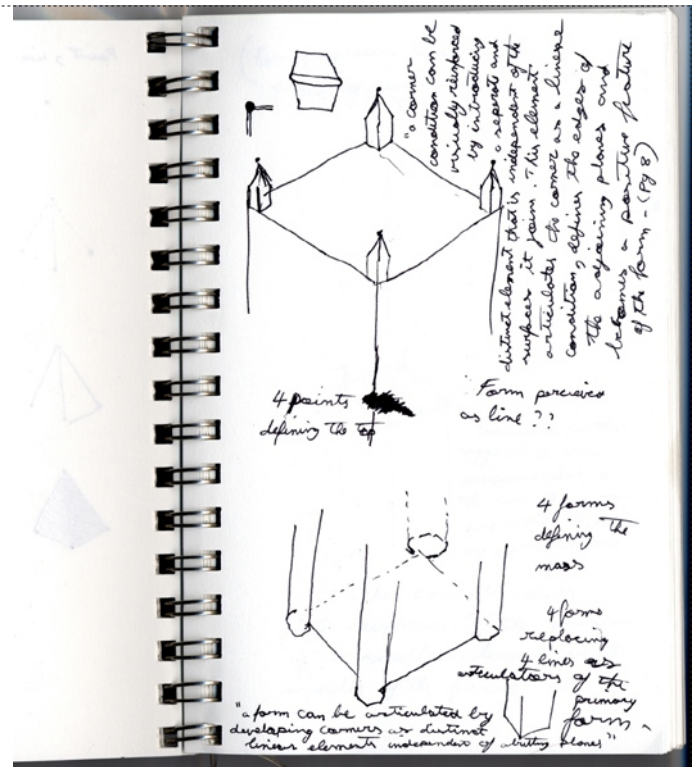 "a corner
condition can be
visually reinforced
by introducing
a seperate and
distinct element that is independent of the
surfaces it joins. This element
articulates the corner as a linear
condition, defines the edges of
the adjoining planes and
becomes a positive feature
of the form - (Pg 8)
4 points
defining the top
Form perceived
as line ??
4 forms
defining the
mass
4 forms
replacing
4 lines as
articulators of the
primary
form
"a form can be articulated by
developing corners as distinct
linear elements independent of abutting planes"